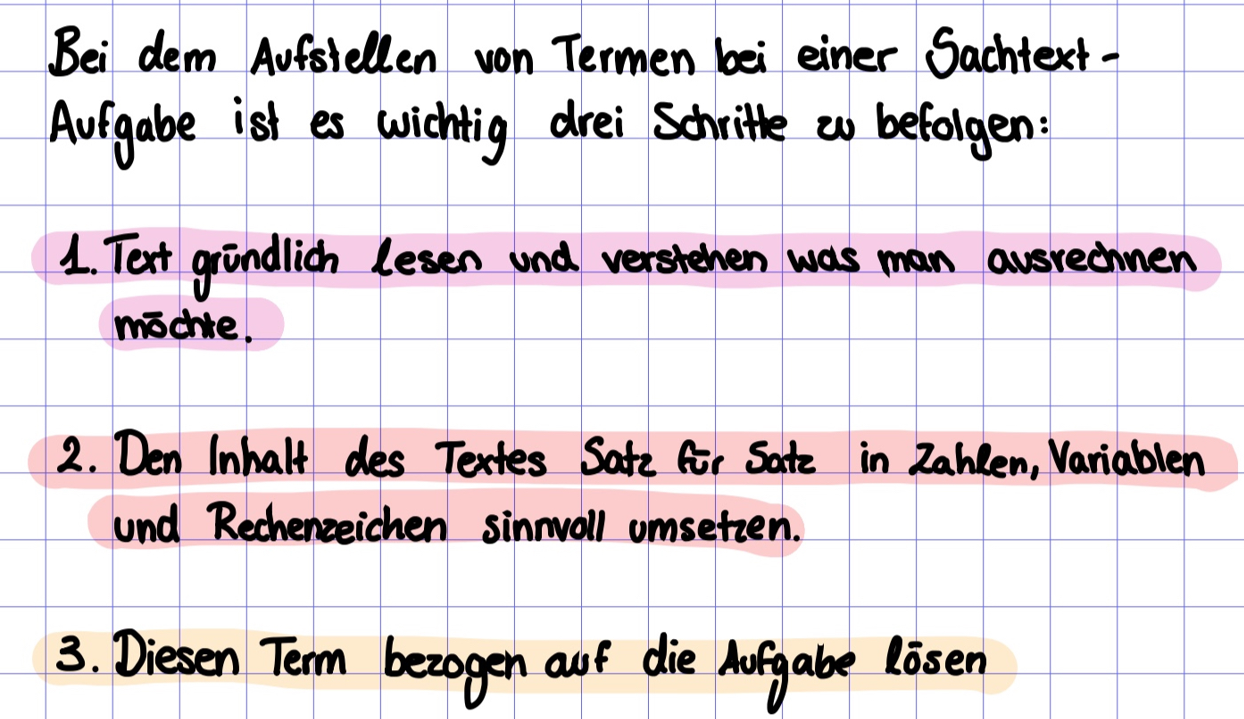 Bei dem Aufstellen von Termen bei einer Sachtext-
Aufgabe ist es wichtig drei Schritte zu befolgen:
1. Text gründlich lesen und verstehen was man ausrechnen
möchte.
2. Den Inhalt des Textes Satz für Satz in Zahlen, Variablen
und Rechenzeichen sinnvoll umsetzen.
3. Diesen Term bezogen auf die Aufgabe lösen